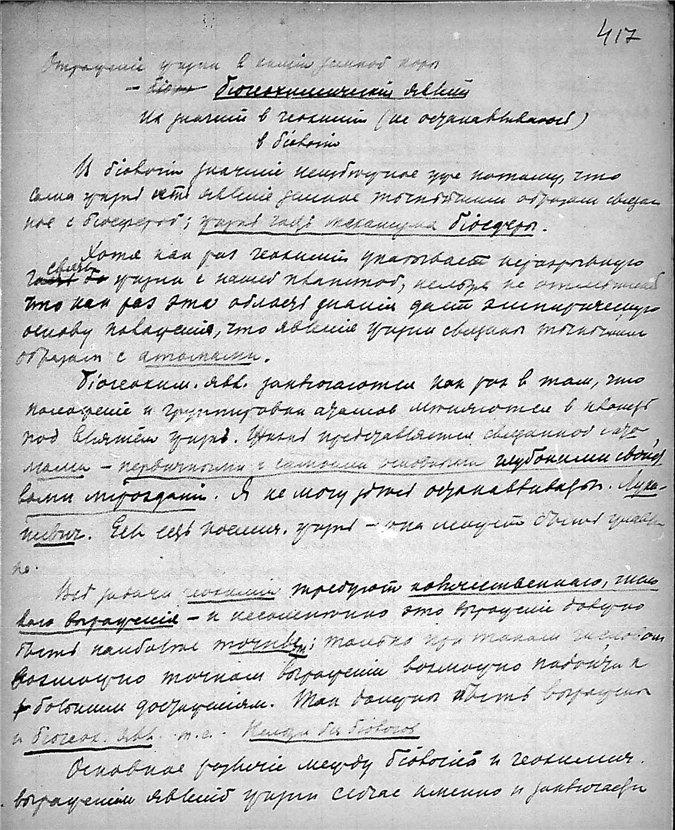 417
Отражение жизни в химии земной коры
— биогеохимический явлен
Их значение в геохимии (не останавливаюсь)
в биологии
В биологии значение неизбежное уже потому, что
сама жизнь есть явление земное теснейшим образом связан
ное с биосферой; жизнь часть механизма биосферы.
Хотя как раз геохимия указывает неразрывную
связь жизни с нашей планетой, нельзя не
что как раз эта область знания дает эмпирическую
основу положения, что явления жизни связаны теснейшим
образом с атомами.
Биогеохим. явл. заключаются как раз в том, что
положение и группировки атомов меняются в планете
под влиянием жизни. Жизнь представляется связанной с ато
мами — первичными и самыми основными глубокими свойст
вами мироздания. Я не могу здесь останавливаться.
Все задачи геохимии требуют количественного, числ
вого выражения — и несомненно это выражение должно
быть наиболее точным; только при таком числовом
возможно точном выражении возможно подойти к
большим достижениям. Так должны быть выражены
и биогеох. явл. т.е. для биологов
Основное различие между биологией и геохимич.
выражением явлений жизни сейчас именно и заключается